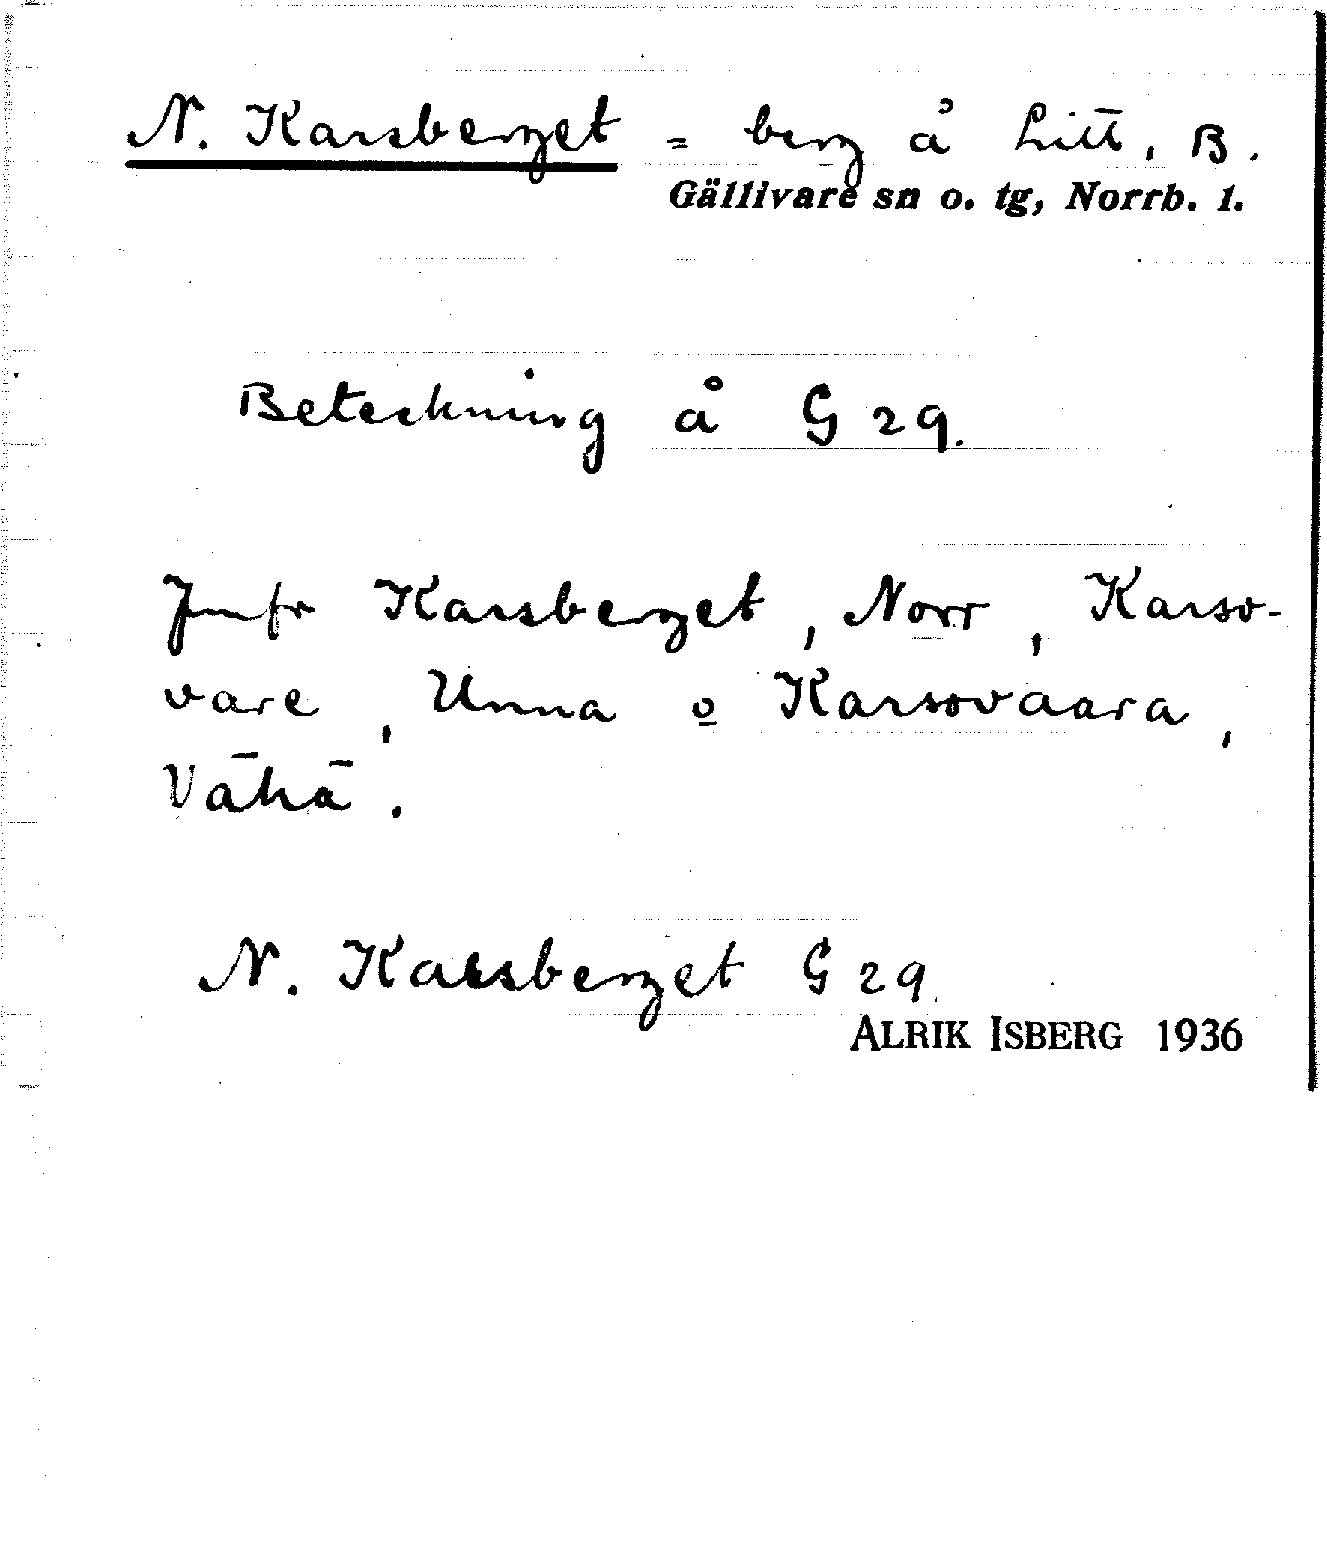 N. Karsberget = berg å Litt. B.
Gällivare sn o. tg, Norrb. l.
Beteckning å G 29.
Jmfr Karsberget, Norr, Karso-
vare, Unna o Karsovaara,
Vähä.
N. Karsberget G 29.
ALRIK ISBERG 1936